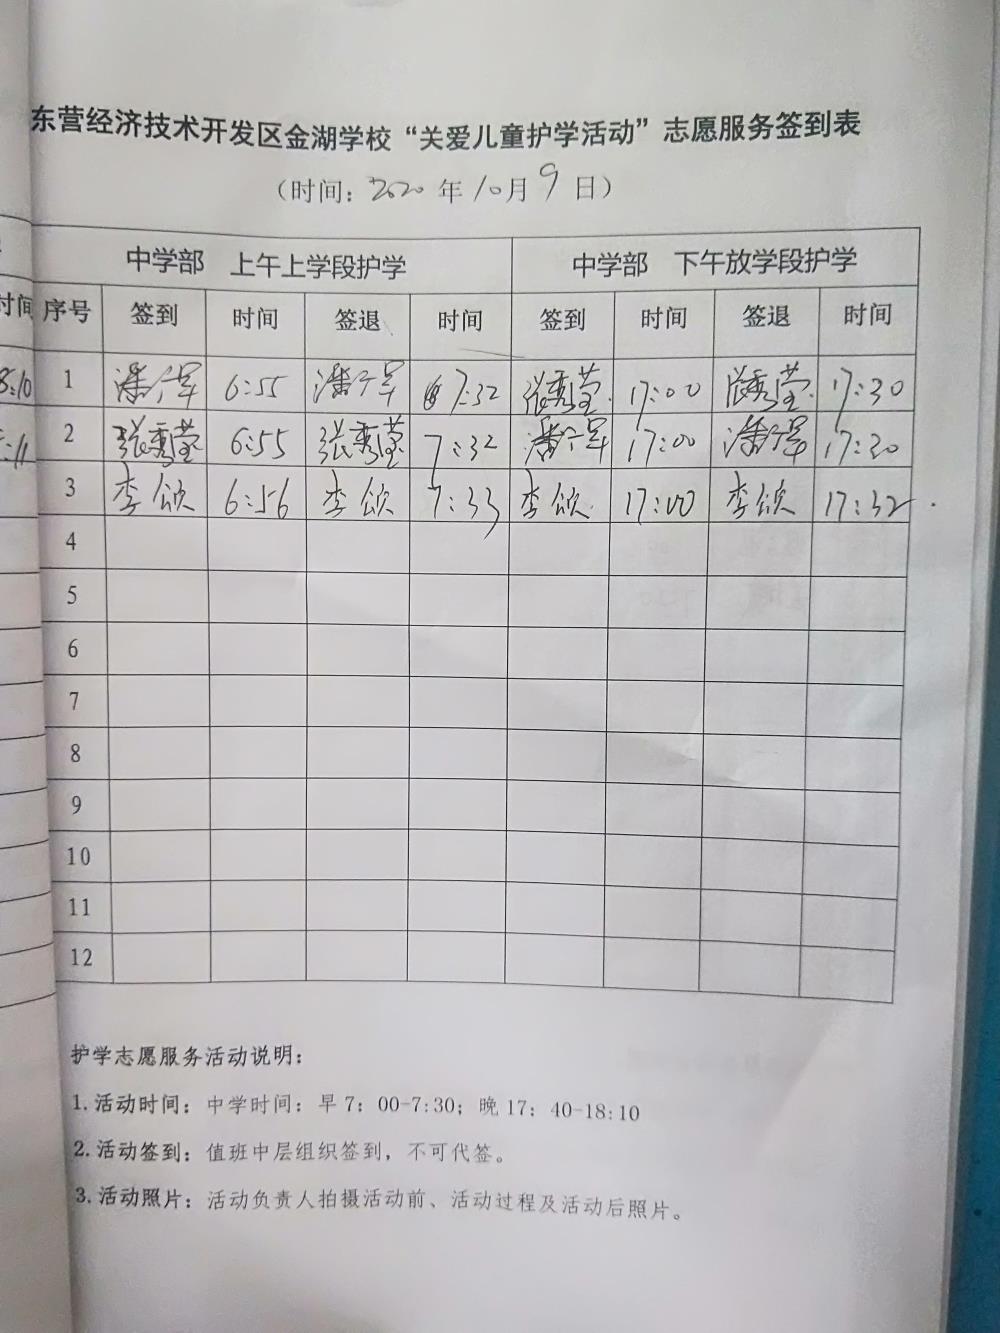 东营经济技术开发区金湖学校“关爱儿童护学活动”志愿服务签到表
（时间：2020年10月9日）
中学部 上午上学段护学 中学部 下午放学段护学
时间 序号 签到 时间 签退 时间 签到 时间 签退 时间
8:10 1 6:55 7:32 张秀莹 17:00 张秀莹 17:30
:11 2 张秀莹 6:55 张秀莹 7:32 17:00 17:30
3 李颂 6:56 李颂 7:33 李颂 17:00 李颂 17:32
4
5
6
7
8
9
10
11
12
护学志愿服务活动说明：
1.活动时间：中学时间：早7：00-7:30；晚17：40-18:10
2.活动签到：值班中层组织签到，不可代签。
3.活动照片：活动负责人拍摄活动前、活动过程及活动后照片。